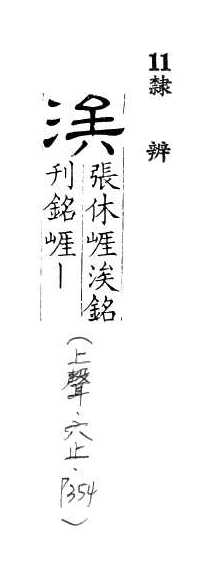 11隸辨
涘
張休崕涘銘
刊銘崕ー
(上聲.六止.P354)